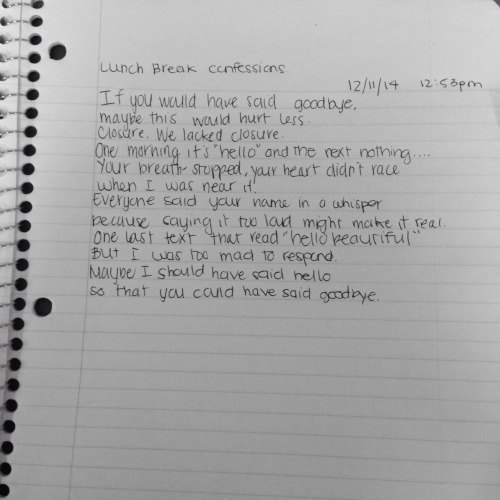 Lunch Break confessions.
12/11/14 12:53pm
If you would have said goodbye,
maybe this would hurt less.
Closure. We lacked closure.
One morning it's "hello" and the next nothing....
Your breath stopped, your heart didn't race
when I was near it.
Everyone said your name in a whisper
because saying it too loud might make it real.
One last text that read "hello beautiful"
But I was too mad to respond.
Maybe I should have said hello
so that you could have said goodbye.